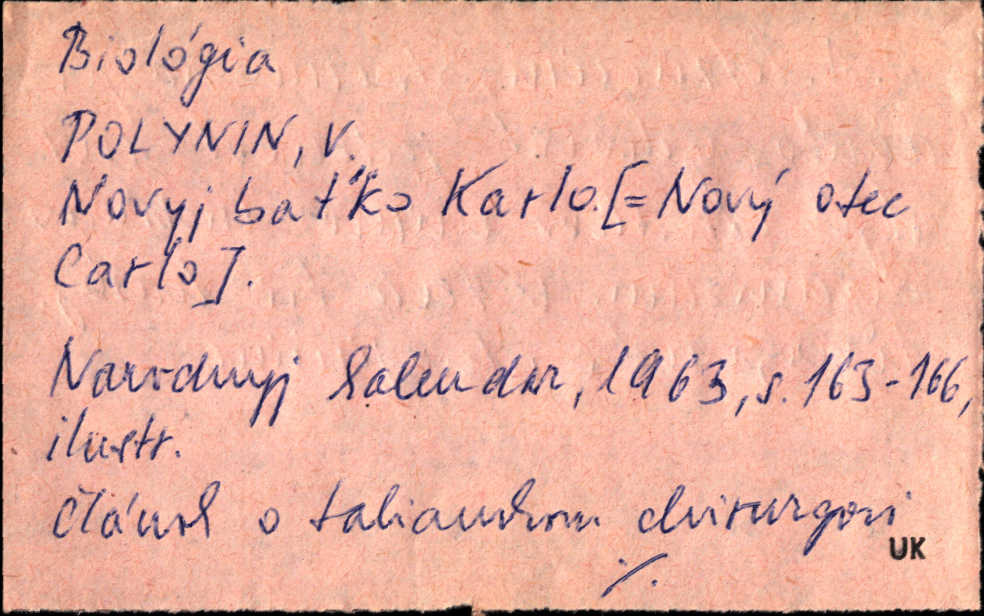 Biológia
POLYNIN, V.
Novyj baťko Karlo.[=Nový otec
Carlo].
Narodnyj kalendar, 1963, s. 163-166,
ilustr.
Článok o talianskom chirurgovi
UK
./.